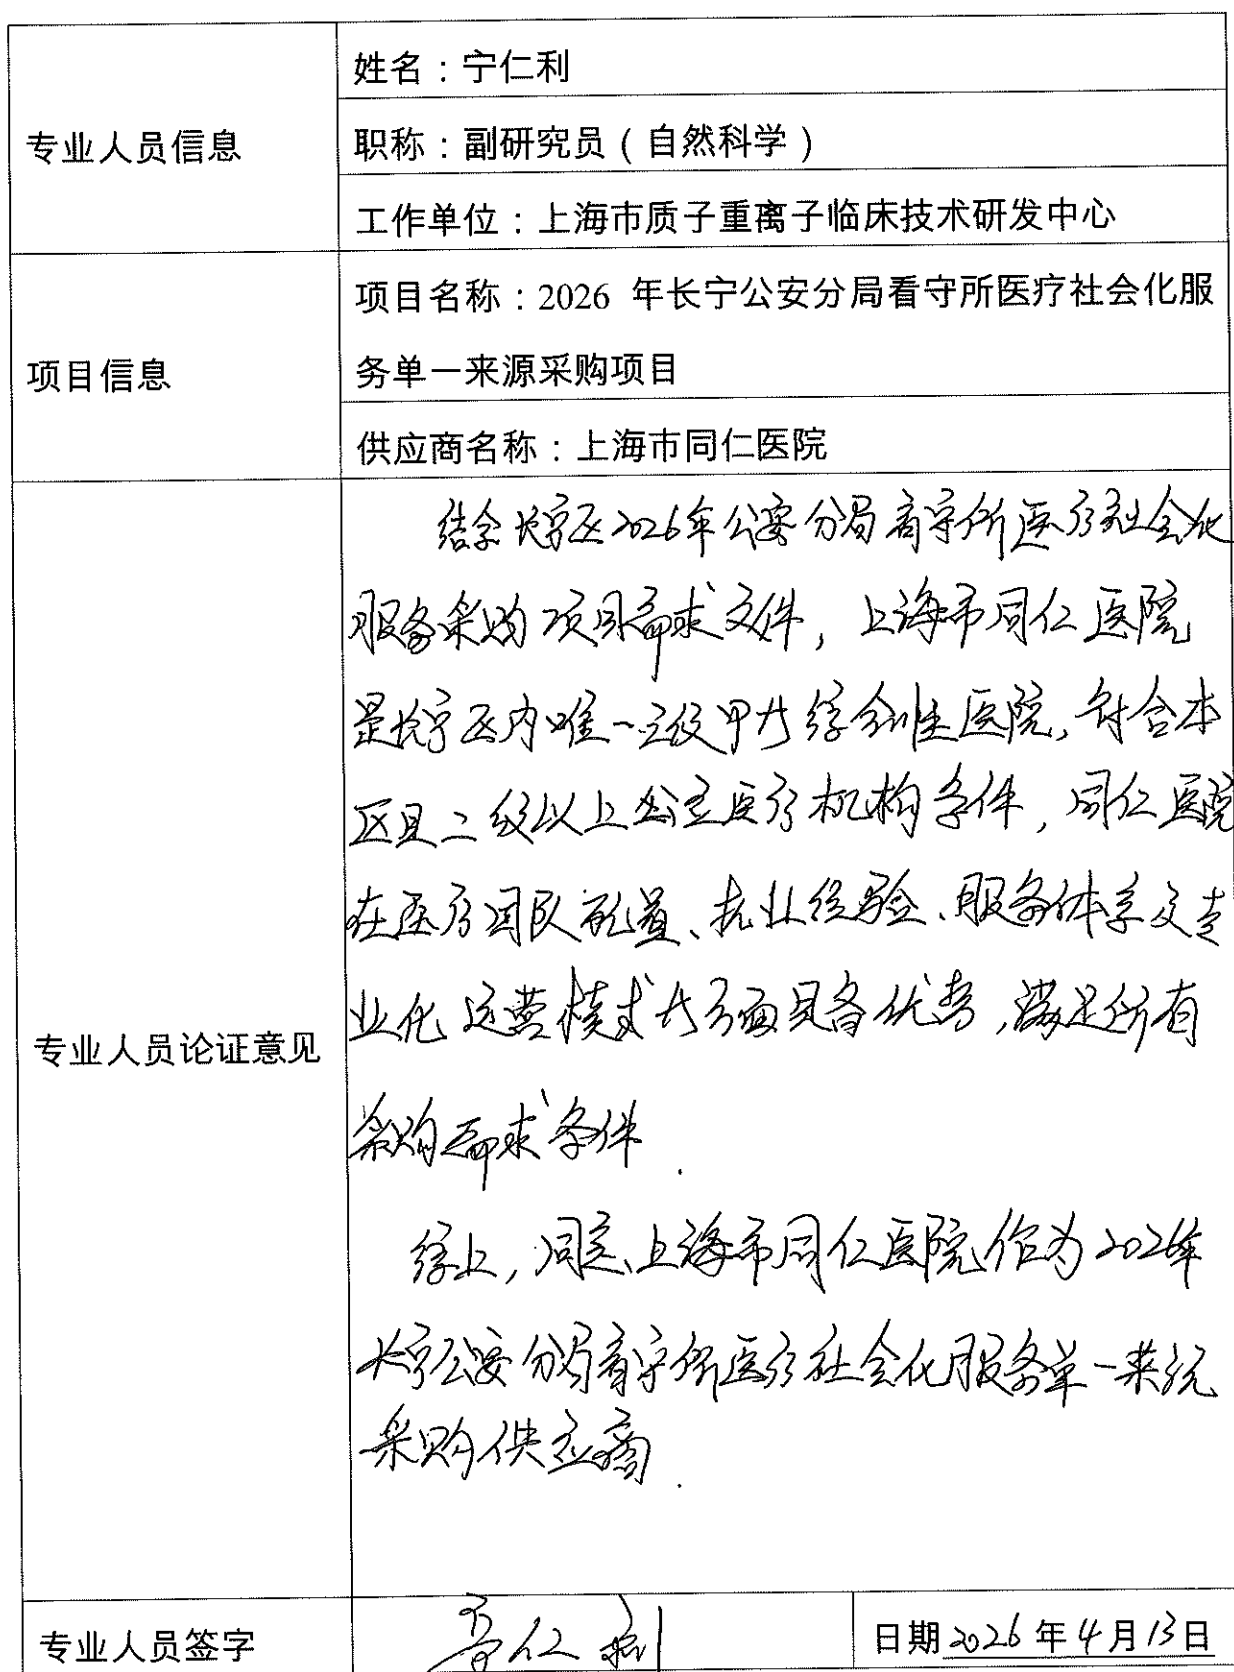 专业人员信息
姓名：宁仁利
职称：副研究员（自然科学）
工作单位：上海市质子重离子临床技术研发中心
项目信息
项目名称：2026 年长宁公安分局看守所医疗社会化服
务单一来源采购项目
供应商名称：上海市同仁医院
专业人员论证意见
结合长宁区2026年公安分局看守所医疗社会化
服务采购项目需求文件，上海市同仁医院
是长宁区内唯一三级甲等综合性医院，符合本
区且二级以上公立医疗机构条件，同仁医院
在医疗团队配置、执业经验、服务体系及专
业化运营模式等方面具备优势，满足所有
采购需求条件.
综上，同意上海市同仁医院作为2026年
长宁公安分局看守所医疗社会化服务单一来源
采购供应商.
专业人员签字
宁仁利
日期2026年4月13日